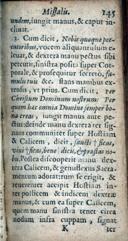 Missalis. 145
undem, iungit manus, & caput in-
clinat.
2. Cum dicit, Nobis quoque pec-
catoribus, vocem aliquantulum e-
leuat, & dextera manu pectus sibi
percutit, sinistra posita super Cor-
porale, & prosequitur secreto, fa-
mulis tuis &c. stans manibus ex-
tensis, vt prius. Cum dicit, Per
Christum Dominum nostrum. Per
quem hæc omnia Domine semper bo-
na creas, iungit manus ante pe-
ctus: deinde manu dextera ter si-
gnans communiter super Hostiam
& Calicem, dicit, sancti ficas,
viui ficas, bene dicis, & præstas no-
bis. Postea discooperit manu dex-
tera Calicem, & genuflexus Sacra-
mentum adorat: tum se erigit, &
reuerenter accipit Hostiam in-
ter pollicem & indicem dextræ
manus, & cum ea super Calicem,
quem manu sinistra tenet circa
nodum infra cuppam, signat
K ter